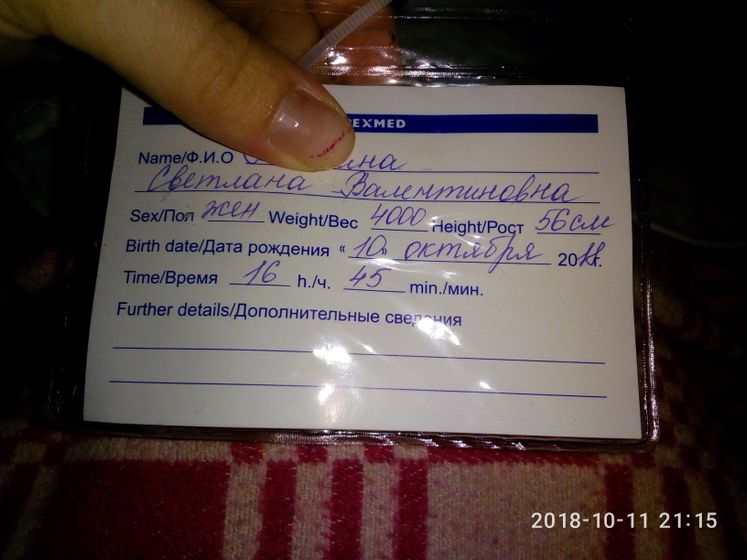 EXMED
Name/Ф.И.О
Светлана Валентиновна
Sex/Пол жен Weight/Вес 4000 Height/Рост 56см
Birth date/Дата рождения "10" октября 2018г.
Time/Время 16 h./ч. 45 min./мин.
Further details/Дополнительные сведения
2018-10-11 21:15